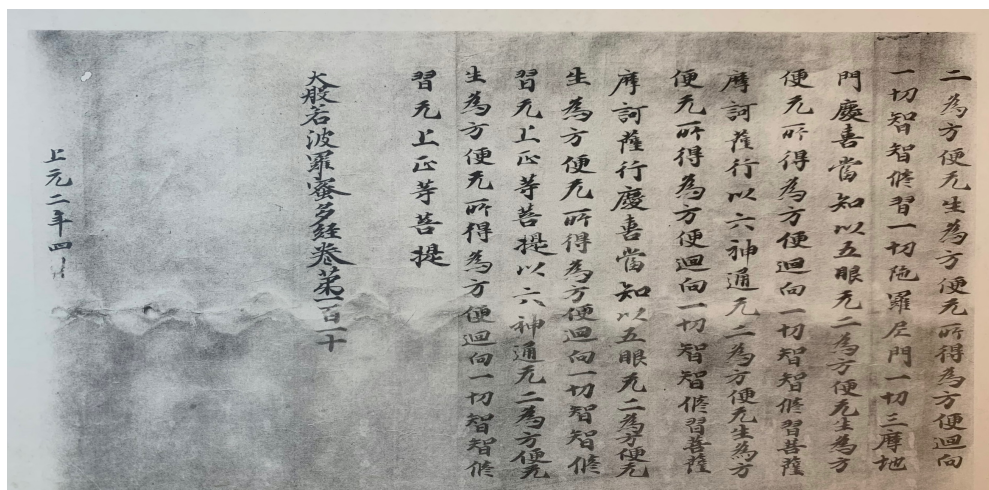 二為方便无生為方便无所得為方便迴向
一切智智修習一切陁羅尼門一切三摩地
門慶喜當知以五眼无二為方便无生為方
便无所得為方便迴向一切智智修習菩薩
摩訶薩行以六神通无二為方便无生為方
便无所得為方便迴向一切智智修習菩薩
摩訶薩行慶喜當知以五眼无二為方便无
生為方便无所得為方便迴向一切智智修
習无上正等菩提以六神通无二為方便无
生為方便无所得為方便迴向一切智智修
習无上正等菩提
大般若波羅蜜多經卷苐一百一十
上元二年四月